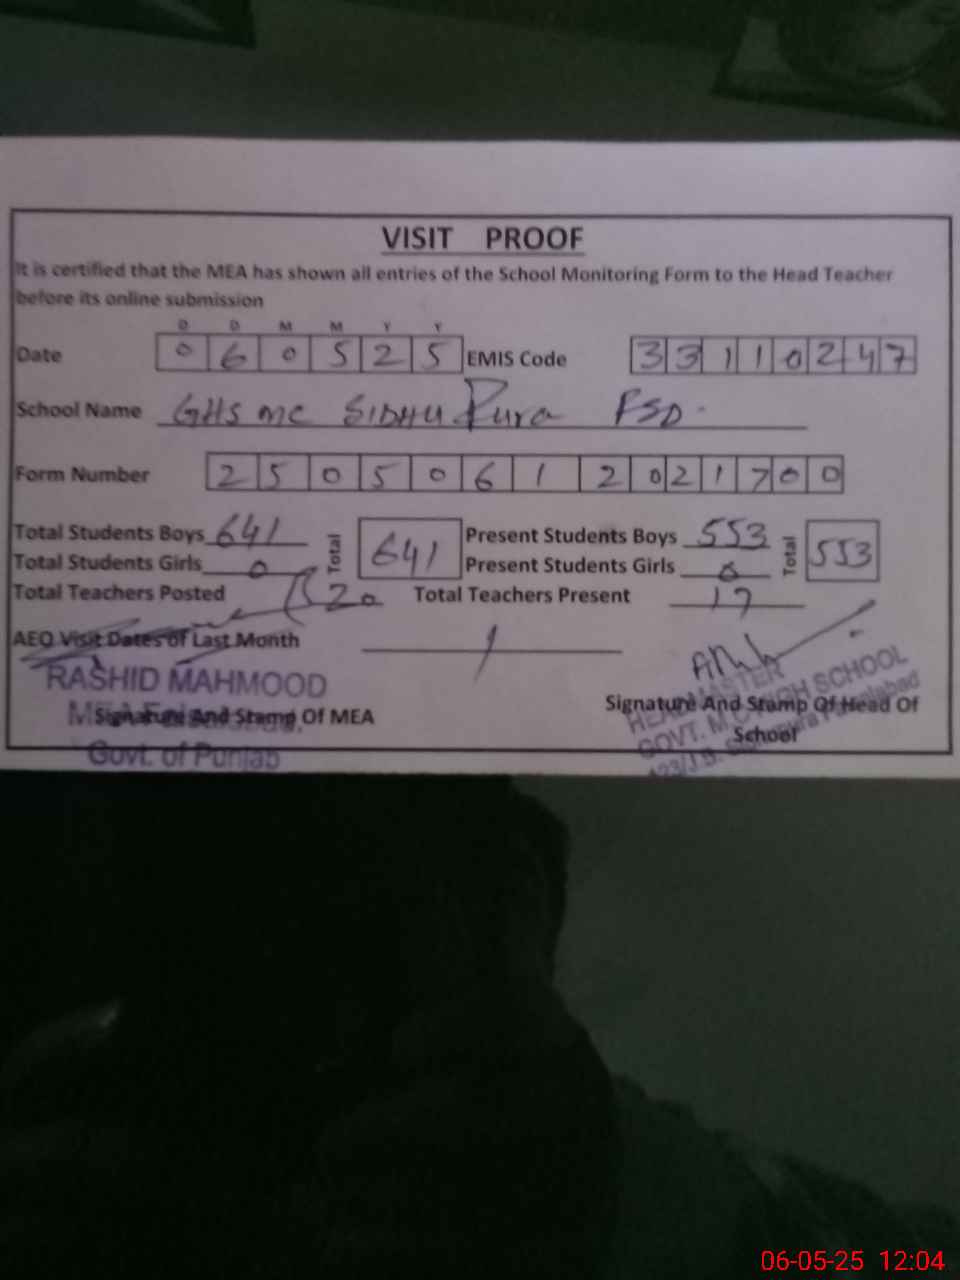 VISIT PROOF
It is certified that the MEA has shown all entries of the School Monitoring Form to the Head Teacher
before its online submission
D D M M Y Y
Date 0 6 0 5 2 5 EMIS Code 3 3 1 1 0 2 4 7
School Name GHS MC SIDHU Pura FSD.
Form Number 2 5 0 5 0 6 1 2 0 2 1 7 0 0
Total Students Boys 641 Total 641 Present Students Boys 553 Total 553
Total Students Girls 0 Present Students Girls 0
Total Teachers Posted 20 Total Teachers Present 17
AEO Visit Dates of Last Month
RASHID MAHMOOD
Signature And Stamp Of MEA
Govt. of Punjab
Signature And Stamp Of Head Of
School
HEADMASTER
GOVT. M.C HIGH SCHOOL
06-05-25 12:04